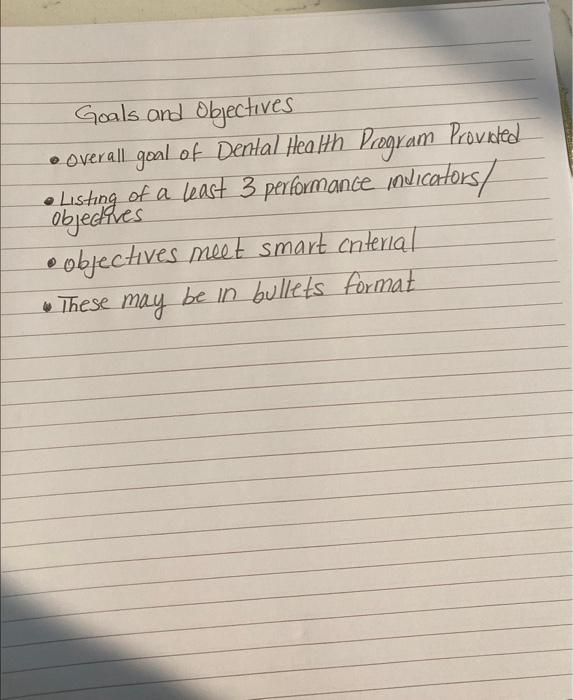 Goals and Objectives
• overall goal of Dental Health Program Provided
• Listing of a least 3 performance indicators/
objectives
• objectives meet smart criterial
• These may be in bullets format